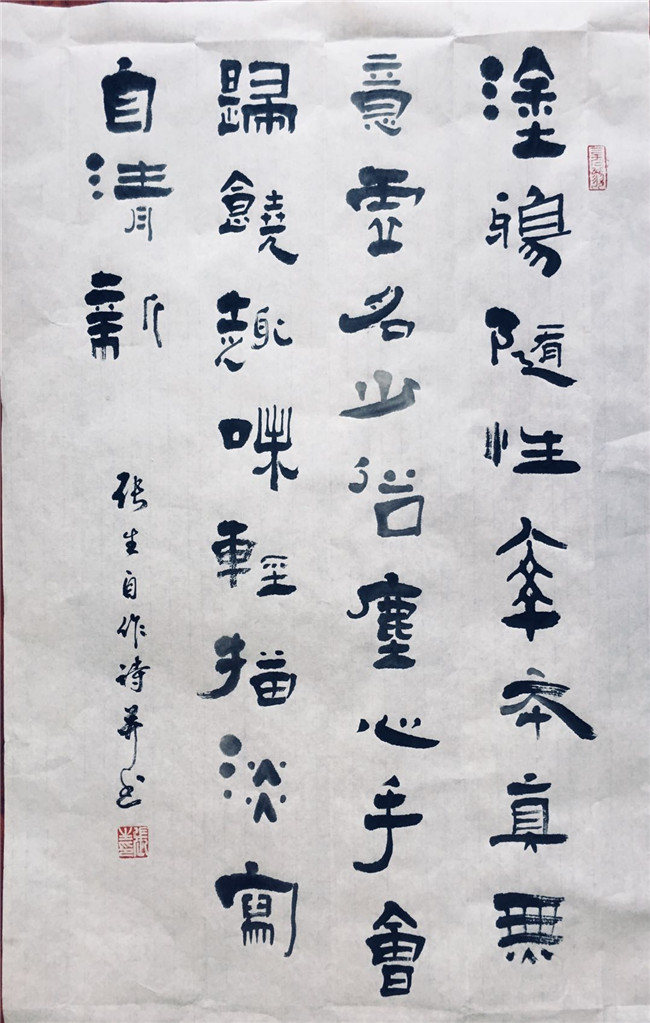 塗鴉隨性率本真無
意虛名少俗塵心手會
歸饒趣味輕描淡寫
自清新
张生自作诗并书